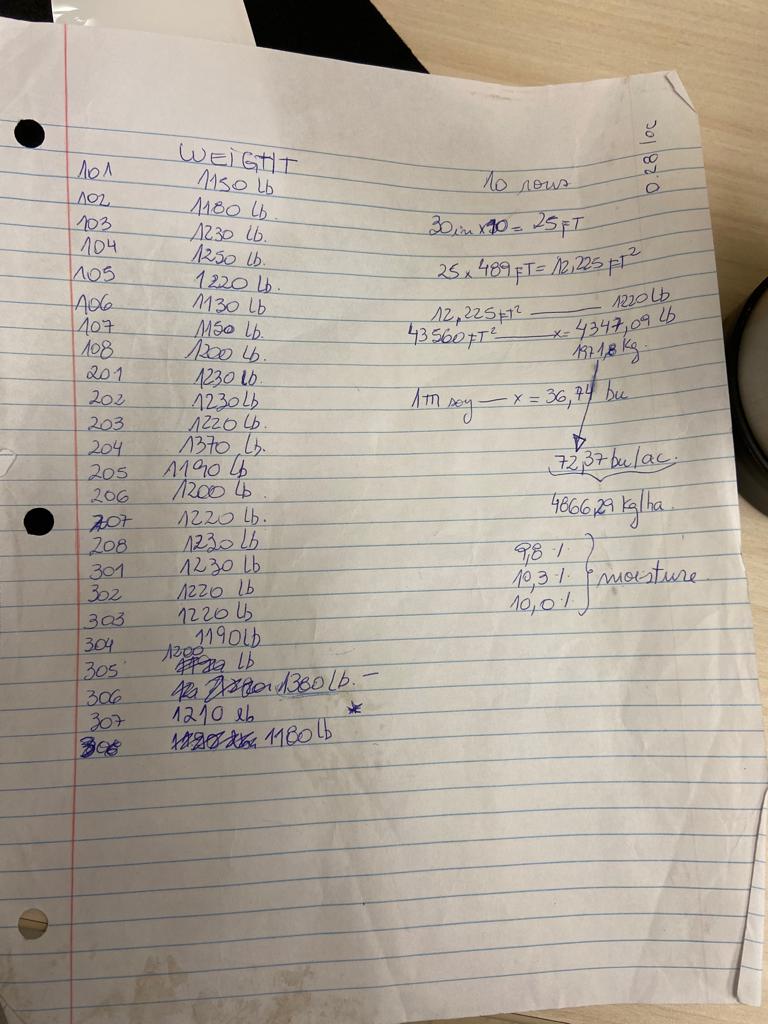 WEIGHT
101 1150 lb
102 1180 lb.
103 1230 lb.
104 1250 lb.
105 1220 lb.
106 1130 lb
107 1150 lb.
108 1200 lb.
201 1230 lb.
202 1230 lb
203 1220 lb
204 1370 lb.
205 1190 lb
206 1200 lb.
207 1220 lb.
208 1230 lb
301 1230 lb
302 1220 lb
303 1220 lb
304 1190 lb
305 1200 lb
306 1380 lb. -
307 1210 lb *
308 1180 lb
0.28 /ac
10 rows
30in x 10 = 25 FT
25 x 489 FT = 12,225 FT²
12,225 FT² — 1220 lb
43560 FT² — x = 4347,09 lb
1971,8 kg.
1 tn soy — x = 36,74 bu
72,37 bu/ac.
4866,29 kg/ha.
9,8 %
10,3 % } moisture.
10,0 %